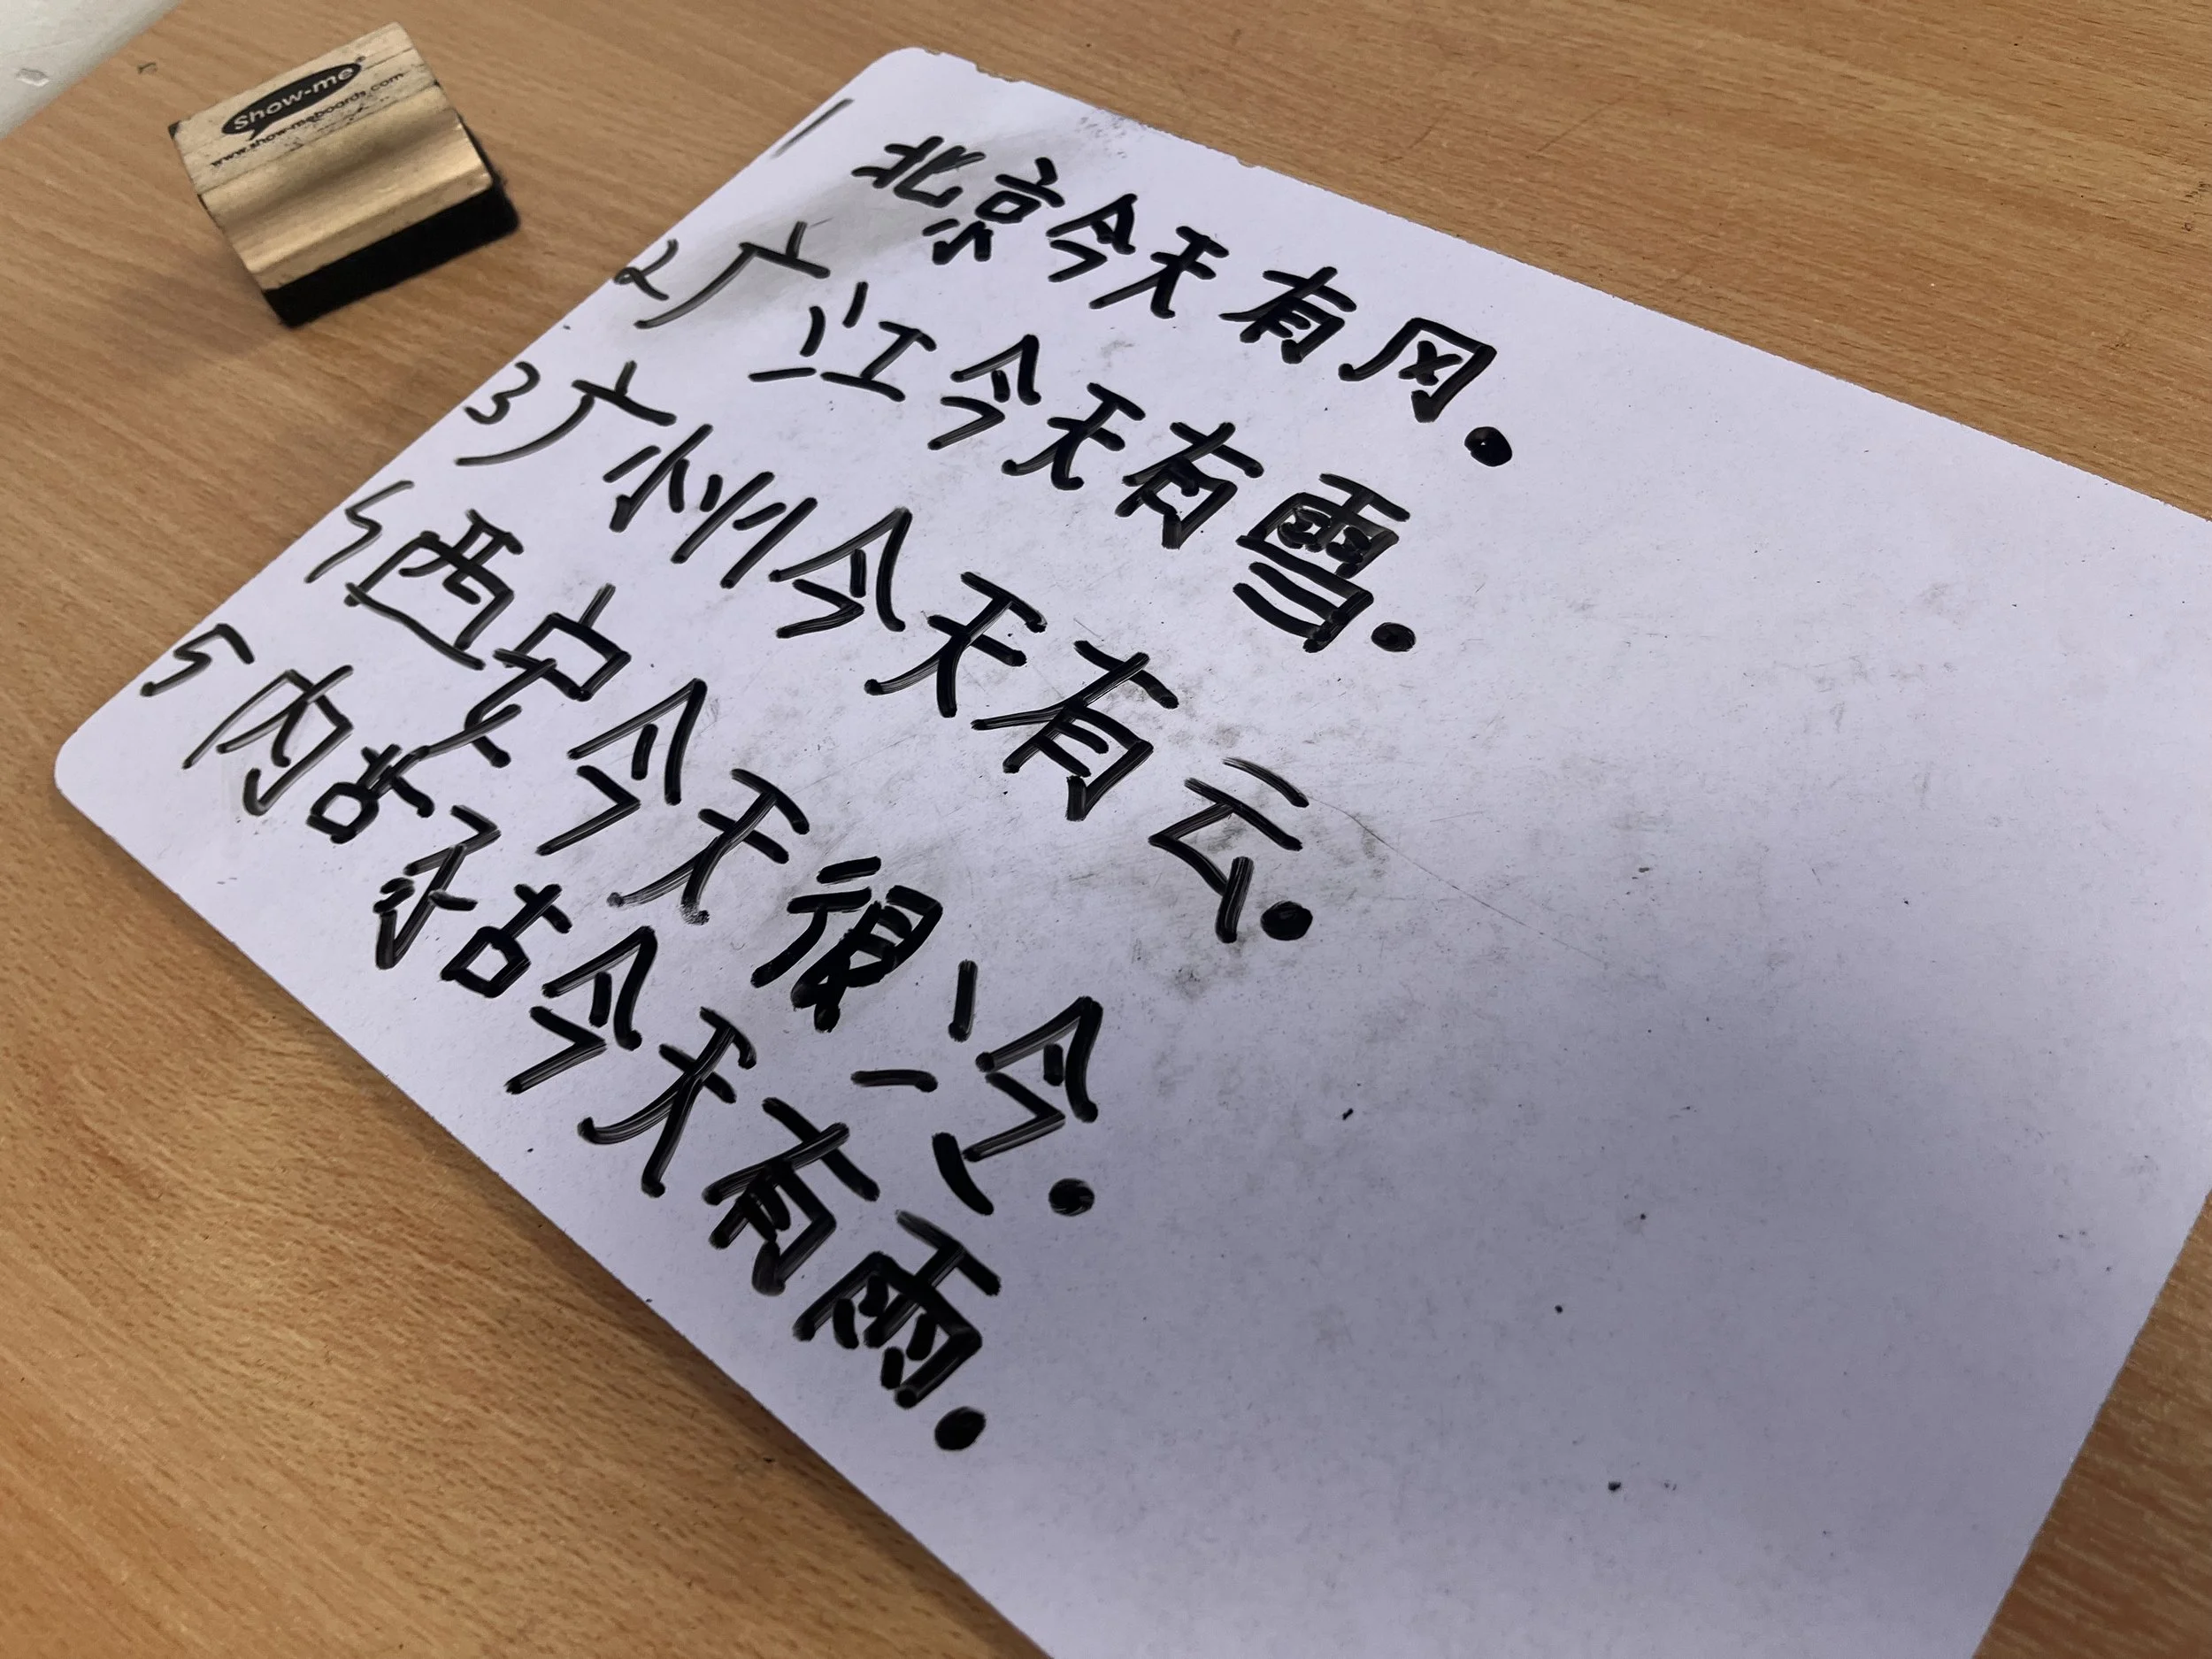 Show-me
www.show-meboards.com
1 北京今天有风.
2 广江今天有雪.
3 广州今天有云.
4 西安今天很冷.
5 内蒙古今天有雨.